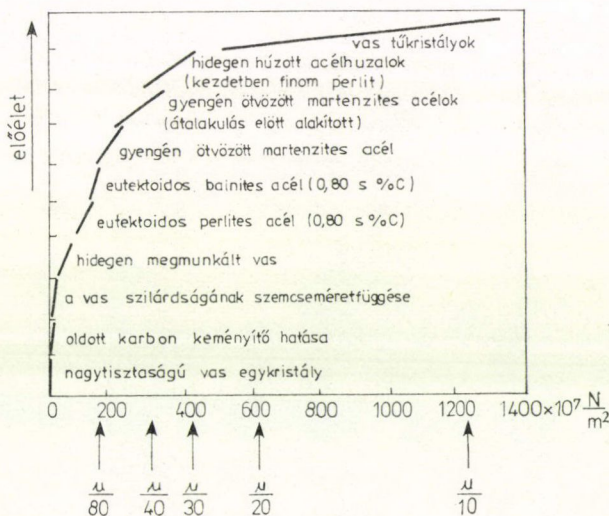 előélet
vas tűkristályok
hidegen húzott acélhuzalok
(kezdetben finom perlit)
gyengén ötvözött martenzites acélok
(átalakulás elött alakított)
gyengén ötvözött martenzites acél
eutektoidos bainites acél (0,80 s %C)
eutektoidos perlites acél (0,80 s %C)
hidegen megmunkált vas
a vas szilárdságának szemcseméretfüggése
oldott karbon keményítő hatása
nagytisztaságú vas egykristály
0 200 400 600 800 1000 1200 1400×10⁷ N/m²
μ/80 μ/40 μ/30 μ/20 μ/10